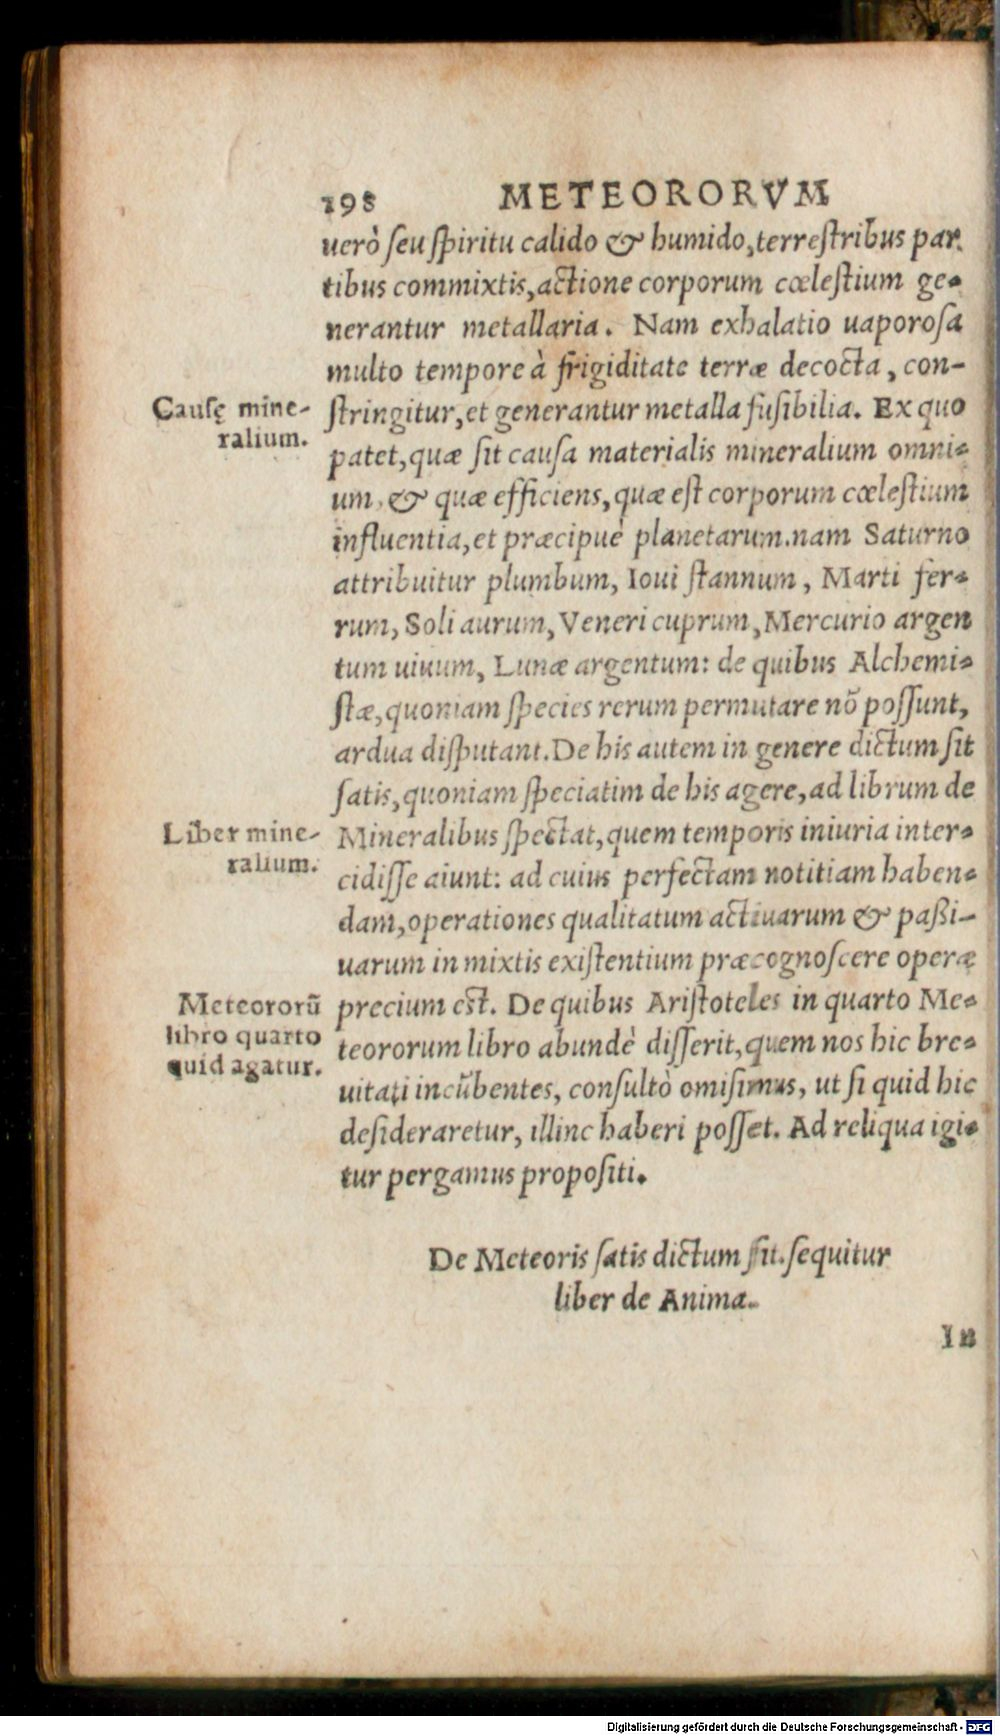 198 METEORORVM
uerò ſeu ſpiritu calido & humido, terreſtribus par
tibus commixtis, actione corporum cœleſtium ge-
nerantur metallaria. Nam exhalatio uaporoſa
multo tempore à frigiditate terræ decocta, con-
Cauſę mine-
ralium.
ſtringitur, et generantur metalla fuſibilia. Ex quo
patet, quæ ſit cauſa materialis mineralium omni-
um, & quæ efficiens, quæ eſt corporum cœleſtium
influentia, et præcipuè planetarum. nam Saturno
attribuitur plumbum, Ioui ſtannum, Marti fer-
rum, Soli aurum, Veneri cuprum, Mercurio argen
tum uiuum, Lunæ argentum: de quibus Alchemi-
ſtæ, quoniam ſpecies rerum permutare nō poſſunt,
ardua diſputant. De his autem in genere dictum ſit
ſatis, quoniam ſpeciatim de his agere, ad librum de
Liber mine-
ralium.
Mineralibus ſpectat, quem temporis iniuria inter-
cidiſſe aiunt: ad cuius perfectam notitiam haben-
dam, operationes qualitatum actiuarum & paßi-
uarum in mixtis exiſtentium præcognoſcere operæ
Meteororū
libro quarto
quid agatur.
precium eſt. De quibus Ariſtoteles in quarto Me-
teororum libro abundè diſſerit, quem nos hic bre-
uitati incūbentes, conſultò omiſimus, ut ſi quid hic
deſideraretur, illinc haberi poſſet. Ad reliqua igi-
tur pergamus propoſiti.
De Meteoris ſatis dictum ſit. ſequitur
liber de Anima.
In
Digitalisierung gefördert durch die Deutsche Forschungsgemeinschaft - DFG